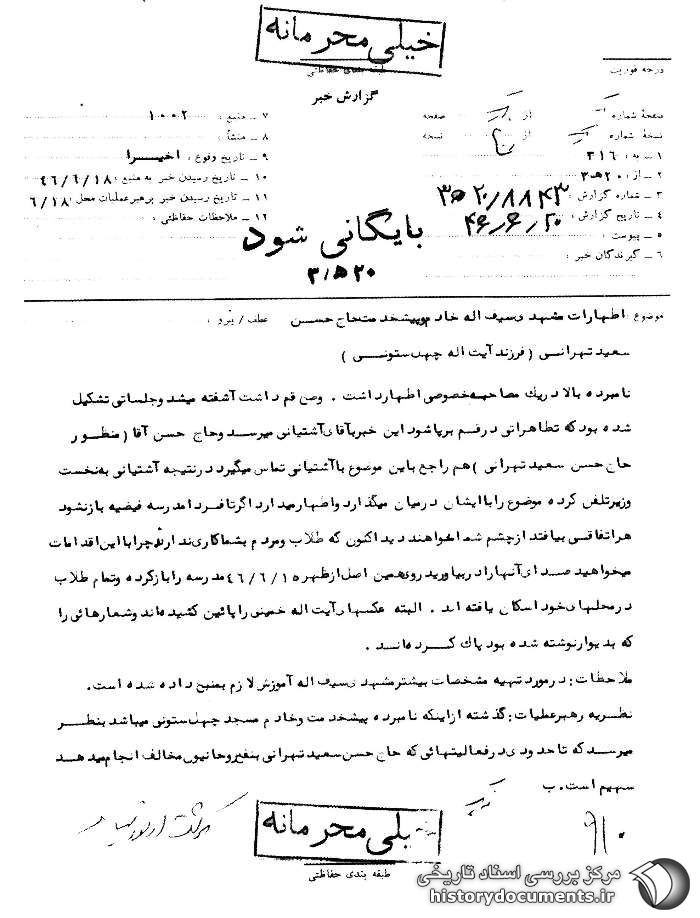 خیلی محرمانه
طبقه بندی حفاظتی
درجه فوریت
گزارش خبر
صفحهٔ شماره از صفحه
نسخهٔ شماره از نسخه
۱ - به : ۳۱۶
۲ - از : ۲۰ ه ۳
۳ - شماره گزارش : ۸۸۴۳ / ۲۰ ه ۳
۴ - تاریخ گزارش : ۴۶/۶/۲۰
۵ - پیوست :
۶ - گیرندگان خبر :
۷ - منبع : ۱۰۰۰۲
۸ - منشأ :
۹ - تاریخ وقوع : اخیرا
۱۰ - تاریخ رسیدن خبر به منبع : ۴۶/۶/۱۸
۱۱ - تاریخ رسیدن خبر برهبر عملیات محل : ۶/۱۸
۱۲ - ملاحظات حفاظتی :
بایگانی شود
۳/ه۲۰
موضوع : اظهارات مشهدی سیف اله خادم و پیشخدمت حاج حسن عطف / پیرو :
سعید تهرانی ( فرزند آیت اله چهلستونی )
نامبرده بالا در یک مصاحبه خصوصی اظهار داشت . وضع قم داشت آشفته میشد و جلساتی تشکیل
شده بود که تظاهراتی در قم برپا شود این خبر بآقای آشتیانی میرسد و حاج حسن آقا ( منظور
حاج حسن سعید تهرانی ) هم راجع باین موضوع با آشتیانی تماس میگیرد در نتیجه آشتیانی به نخست
وزیر تلفن کرده موضوع را با ایشان در میان میگذارد و اظهار میدارد اگر تا فردا مدرسه فیضیه باز نشود
هر اتفاقی بیافتد از چشم شما خواهند دید اکنون که طلاب و مردم بشما کاری ندارند چرا با این اقدامات
میخواهید صدای آنها را در بیاورید روی همین اصل از ظهر ۴۶/۶/۱۵ مدرسه را باز کرده و تمام طلاب
در محلهای خود اسکان یافته اند . البته عکسهای آیت اله خمینی را پائین کشیده اند و شعارهائی را
که بدیوار نوشته شده بود پاک کرده اند .
ملاحظات : در مورد تهیه مشخصات بیشتر مشهدی سیف اله آموزش لازم بمنبع داده شده است .
نظریه رهبر عملیات : گذشته از اینکه نامبرده پیشخدمت و خادم مسجد چهلستونی میباشد بنظر
میرسد که تا حدودی در فعالیتهائی که حاج حسن سعید تهرانی بنفع روحانیون مخالف انجام میدهد
سهیم است . ب
خیلی محرمانه
طبقه بندی حفاظتی
۹۱۰
مرکز بررسی اسناد تاریخی
historydocuments.ir